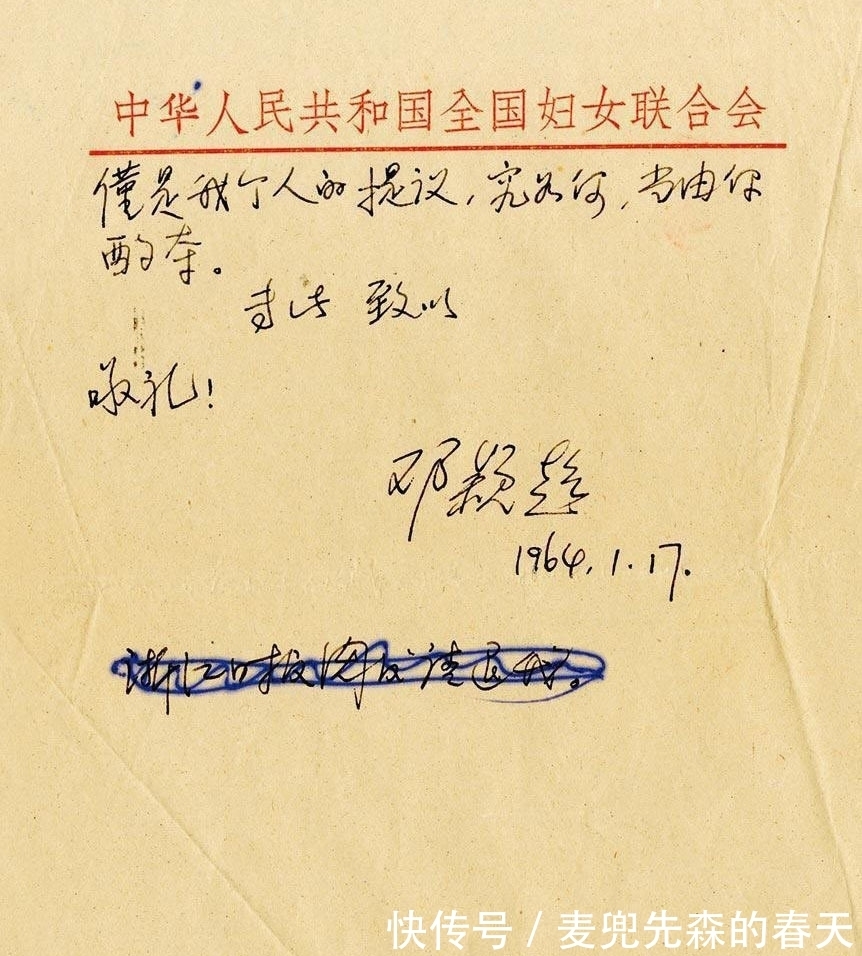 中华人民共和国全国妇女联合会
僅是我个人的提议，究如何，当由你
酌夺。
专此 致以
敬礼！
邓颖超
1964.1.17.
浙江日报阅后请退我。
快传号 / 麦兜先森的春天